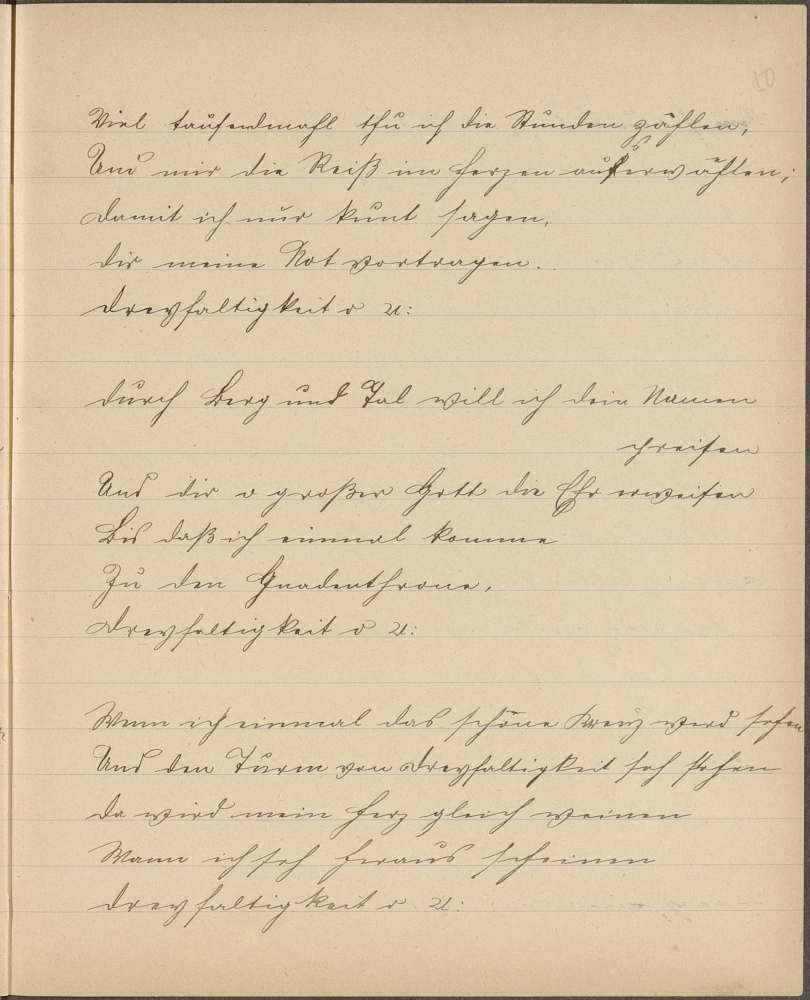 10
Viel tausendmahl thu ich die Stunden zählen,
Und mir die Reiß im Herzen auserwählen;
damit ich nur kunt sagen,
dir meine Not vortragen.
dreyfaltigkeit o u:
durch Berg und Tal will ich dein Namen
preisen
Und dir o großer Gott die Ehr erweisen
Bis daß ich einmal komme
Zu den Gnadenthrone,
dreyfaltigkeit o u:
Wenn ich einmal das schöne Kreuz werd sehen
Und den Turm von dreyfaltigkeit seh stehen
da wird mein Herz gleich weinen
Wann ich seh heraus scheinen
dreyfaltigkeit o u: